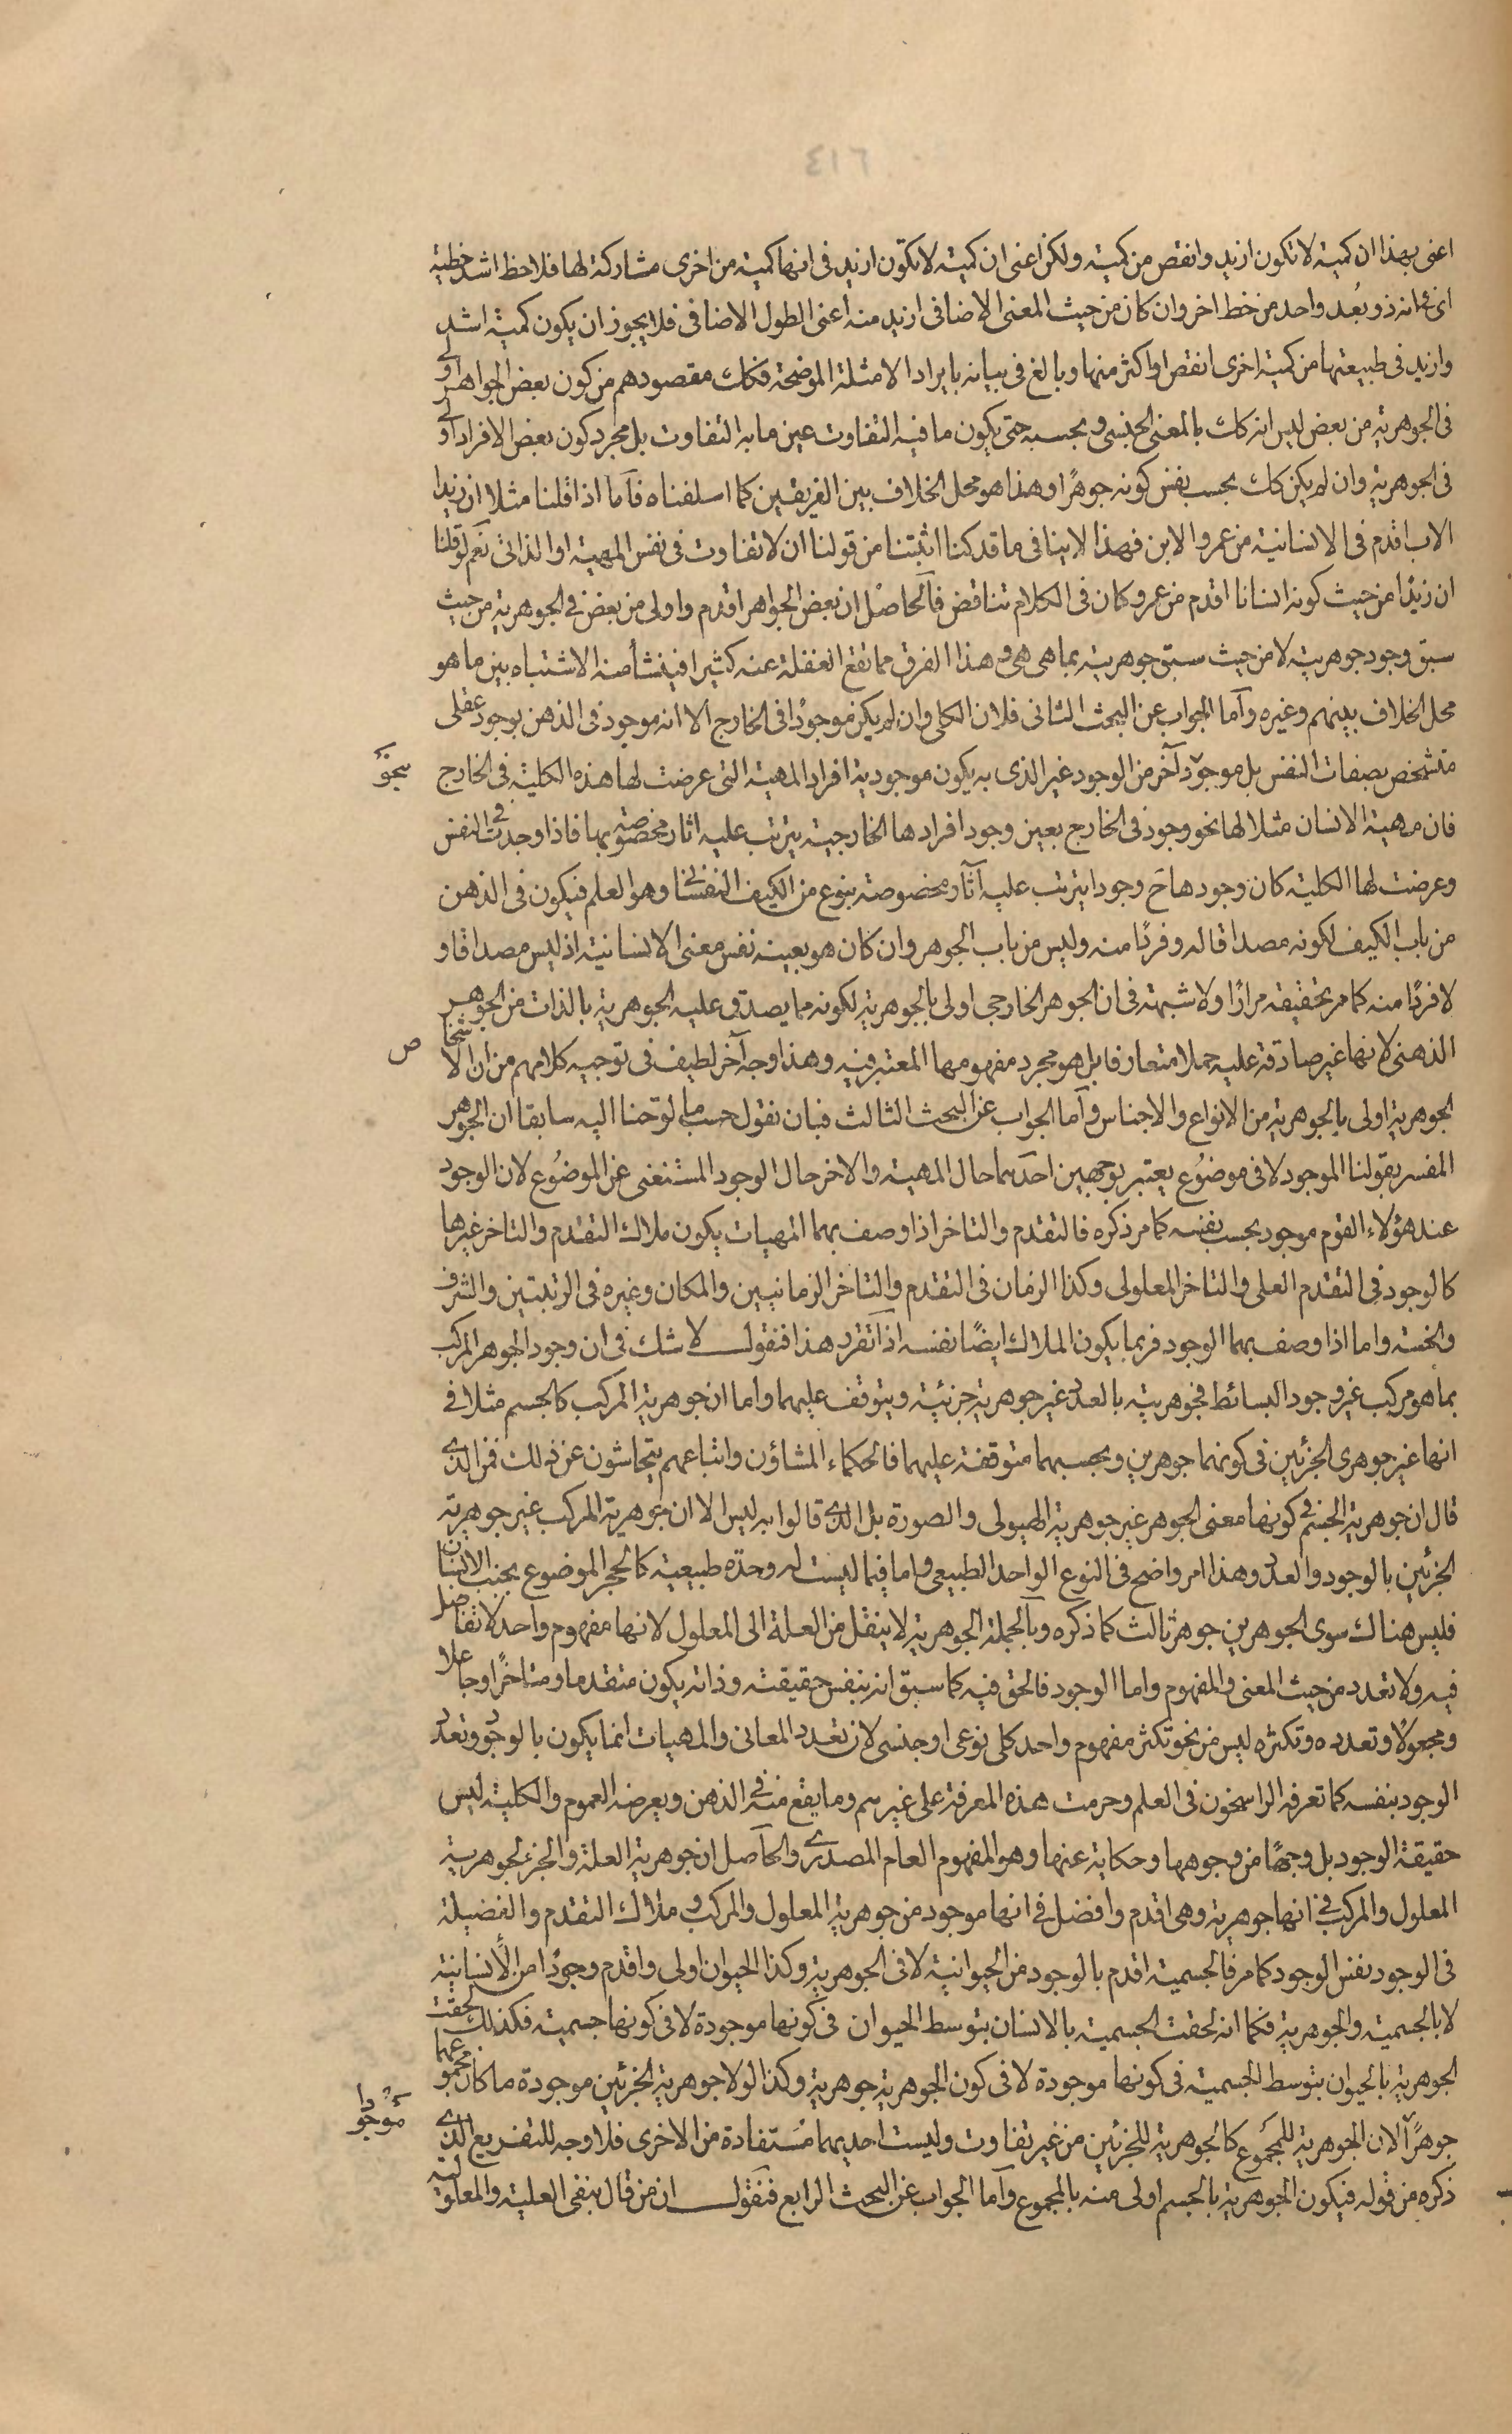 اعنى بهذا ان كمية لا تكون ازيد وانقص من كمية ولكن اعنى ان كمية لا تكون ازيد فى انها كمية من اخرى مشاركة لها فلا خط اشد خطية
اى فى انه ذو بُعد واحد من خط اخر وان كان من حيث المعنى الاضافى ازيد منه اعنى الطول الاضافى فلا يجوز ان يكون كمية اشد
وازيد فى طبيعتها من كمية اخرى انقص او اكثر منها وبالغ فى بيانه بايراد الامثلة الموضحة فكان مقصودهم من كون بعض الجواهر اولى
فى الجوهرية من بعض ليس انه كك بالمعنى الجنسى وبحسبه حتى يكون ما فيه التفاوت عين ما به التفاوت بل مجرد كون بعض الافراد اولى
فى الجوهرية وان لم يكن كك بحسب نفس كونه جوهرًا وهذا هو محل الخلاف بين الفريقين كما اسلفناه فاما اذا قلنا مثلا ان زيدا
الاب اقدم فى الانسانية من عمرو الابن فهذا لا ينافى ما قد كنا اثبتنا من قولنا ان لا تفاوت فى نفس المهية او الذاتى نعم لو قلنا
ان زيدًا من حيث كونه انسانا اقدم من عمرو كان فى الكلام تناقض فالحاصل ان بعض الجواهر اقدم واولى من بعض فى الجوهرية من حيث
سبق وجود جوهريته لا من حيث سبق جوهريته بما هى هى وهذا الفرق مما تقع الغفلة عنه كثيرا فينشأ منه الاشتباه بين ما هو
محل الخلاف بينهم وغيره وآما الجواب عن البحث الثانى فلان الكلى وان لم يكن موجودًا فى الخارج الا انه موجود فى الذهن بوجود عقلى
متشخص بصفات النفس بل موجود آخر من الوجود غير الذى به يكون موجودية افراد المهية التى عرضت لها هذه الكلية فى الخارج
بنحو
فان مهية الانسان مثلا لها نحو وجود فى الخارج بعين وجود افرادها الخارجية يترتب عليه اثار مخصوصة بها فاذا وجدت فى النفس
وعرضت لها الكلية كان وجودها ح وجودا يترتب عليه آثار مخصوصة بنوع من الكيف النفسانى وهو العلم فيكون فى الذهن
من باب الكيف لكونه مصداقا له وفردًا منه وليس من باب الجوهر وان كان هو بعينه نفس معنى الانسانية اذ ليس مصداقا و
لا فردًا منه كما مر تحقيقه مرارًا ولا شبهة فى ان الجوهر الخارجى اولى بالجوهرية لكونه مما يصدق عليه الجوهرية بالذات من الجوهر
الذهنى لانها غير صادقة عليه حملا متعارفا بل هو مجرد مفهومها المعتبر فيه وهذا وجه آخر لطيف فى توجيه كلامهم من ان الاشخا
ص
الجوهرية اولى بالجوهرية من الانواع والاجناس وآما الجواب عن البحث الثالث فبان نقول حسب ما لوحنا اليه سابقا ان الجوهر
المفسر بقولنا الموجود لا فى موضوُع يعتبر بوجهين احدهما حال المهية والاخر حال الوجود المستغنى عن الموضوُع لان الوجود
عند هؤلاء القوم موجود بحسب نفسه كما مر ذكره فالتقدم والتاخر اذا وصف بهما المهيات يكون ملاك التقدم والتاخر غيرها
كالوجود فى التقدم العلى والتاخر المعلولى وكذا الزمان فى التقدم والتاخر الزمانيين والمكان وغيره فى الرتبيين والشرف
والخسة واما اذا وصف بهما الوجود فربما يكون الملاك ايضًا نفسه اذا تقرر هذا فنقول لا شك فى ان وجود الجوهر المركب
بما هو مركب غير وجود البسائط فجوهريته بالعدد غير جوهرية جزئية ويتوقف عليهما واما ان جوهرية المركب كالجسم مثلا فى
انها غير جوهرى الجزئين فى كونهما جوهرين وبحسبهما متوقفة عليهما فالحكماء المشاؤن واتباعهم يتحاشون عن ذلك فمن الذى
قال ان جوهرية الجسم فى كونها معنى الجوهر غير جوهرية الهيولى والصورة بل الذى قالوا به ليس الا ان جوهرية المركب غير جوهرية
الجزئين بالوجود والعدد وهذا امر واضح فى النوع الواحد الطبيعى واما فيما ليست له وحدة طبيعية كالحجر الموضوع بجنب الانسان
فليس هناك سوى الجوهرين جوهر ثالث كما ذكره وبالجملة الجوهرية لا ينتقل من العلة الى المعلول لانها مفهوم واحد لا تفاضل
فيه ولا تعدد من حيث المعنى والمفهوم واما الوجود فالحق فيه كما سبق انه بنفس حقيقته وذاته يكون متقدما ومتاخرًا وجاعلا
ومجعولا وتعدده وتكثره ليس من نحو تكثر مفهوم واحد كلى نوعى او جنسى لان تعدد المعانى والمهيات انما يكون بالوجود وتعدد
الوجود بنفسه كما تعرفه الراسخون فى العلم وحرمت هذه المعرفة على غيرهم وما يقع منه فى الذهن ويعرضه العموم والكلية ليس
حقيقة الوجود بل وجهًا من وجوهها وحكاية عنها وهو المفهوم العام المصدرى والحاصل ان جوهرية العلة والجزء لجوهرية
المعلول والمركب فى انها جوهرية وهى اقدم وافضل فى انها موجود من جوهرية المعلول والمركب و ملاك التقدم والفضيلة
فى الوجود نفس الوجود كما مر فالجسمية اقدم بالوجود من الحيوانية لا فى الجوهرية وكذا الحيوان اولى واقدم وجودًا من الانسانية
لا بالجسمية والجوهرية فكما انه لحقت الجسمية بالانسان بتوسط الحيوان فى كونها موجودة لا فى كونها جسمية فكذلك لحقت
الجوهرية بالحيوان بتوسط الجسمية فى كونها موجودة لا فى كون الجوهرية جوهرية وكذا لولا جوهرية الجزئين موجودة ما كان مجموعهما
موجودا
جوهرًا لان الجوهرية للمجموع كالجوهرية للجزئين من غير تفاوت وليست احديهما مستفادة من الاخرى فلا وجه للتفريع الذى
ذكره من قوله فيكون الجوهرية بالجسم اولى منه بالمجموع وآما الجواب عن البحث الرابع فنقول ان من قال بنفى العلية والمعلولية